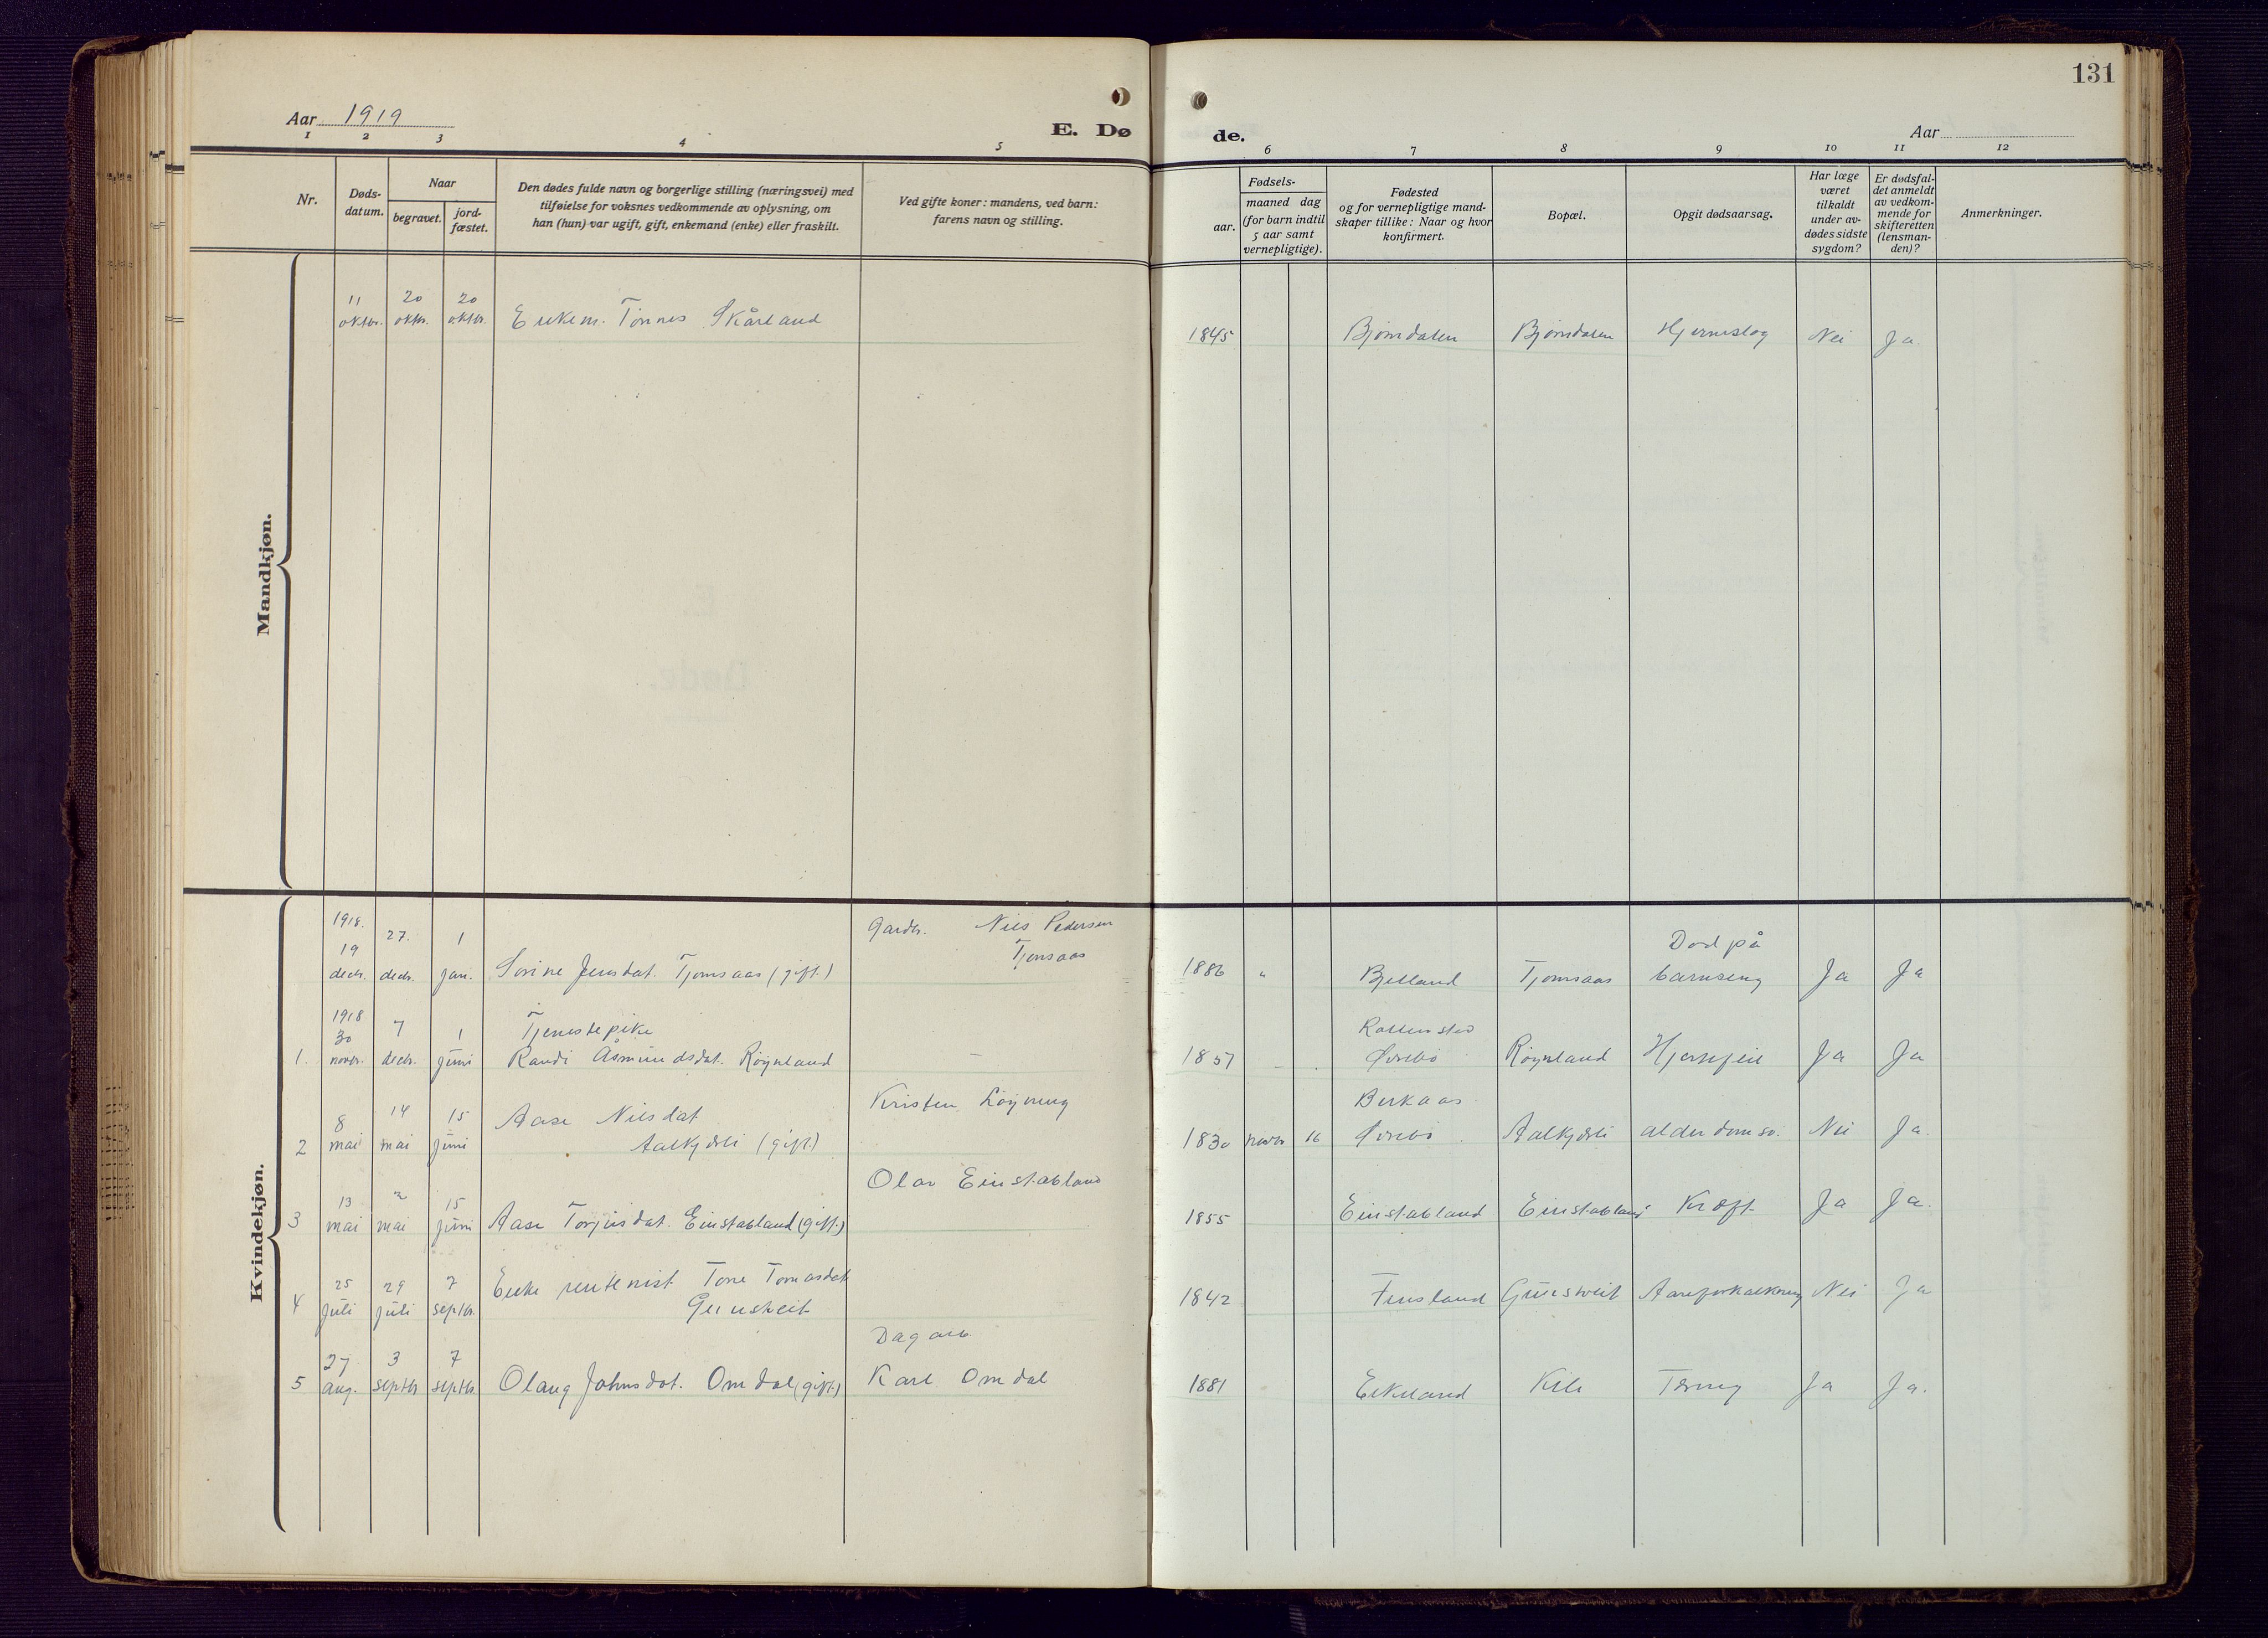 131
Aar 1919
E. Dø
de.
Aar
1 2 3 4 5 6 7 8 9 10 11 12
Nr.
Døds-
datum.
Naar
begravet.
jord-
fæstet.
Den dødes fulde navn og borgerlige stilling (næringsvei) med
tilføielse for voksnes vedkommende av oplysning, om
han (hun) var ugift, gift, enkemand (enke) eller fraskilt.
Ved gifte koner: mandens, ved barn:
farens navn og stilling.
Fødsels-
aar.
maaned dag
(for barn indtil
5 aar samt
vernepligtige).
Fødested
og for vernepligtige mand-
skaper tillike: Naar og hvor
konfirmert.
Bopæl.
Opgit dødsaarsag.
Har læge
været
tilkaldt
under av-
dødes sidste
sygdom?
Er dødsfal-
det anmeldt
av vedkom-
mende for
skifteretten
(lensman-
den)?
Anmerkninger.
Mandkjøn.
11 20 20
oktbr. oktbr. oktbr. Enkem. Tønnes Skårland 1845 Bjørndalen Bjørndalen Hjerneslag Nei Ja
Kvindekjøn.
1918. 27. 1 Gardbr. Niels Pedersen
19 Tjomsaas Død på
decbr. decbr. jan. Sørine Jensdat. Tjomsaas (gift.) 1886 " Bjelland Tjomsaas barnseng Ja Ja
1918
30 7 1 Tjenestepike
1. novbr. decbr. juni Randi Åsmundsdat. Røynland — 1857 Øvrebø Røynland Hjertefeil Ja Ja
8 14 15 Aase Nilsdat Kristen Løyning Berkaas
2 mai mai juni Aalkjærli (gift.) 1830 novbr 16 Øvrebø Aalkjærli alderdomsv. Nei Ja.
13 " 15 Olav Einstabland
3 mai mai juni Aase Torjusdat. Einstabland (gift.) 1855 Einstabland Einstabland Kræft Ja Ja.
25 29 7 Enke rentenist Tone Tomasdat
4 juli juli septbr. Gunsteit 1842 Finsland Gunsteit Aareforkalkning Nei Ja
27 3 7 Dagarb.
5 aug. septbr septbr. Olaug Johnsdat. Omdal (gift.) Karl Omdal 1881 Eikeland Kile Tæring Ja Ja.